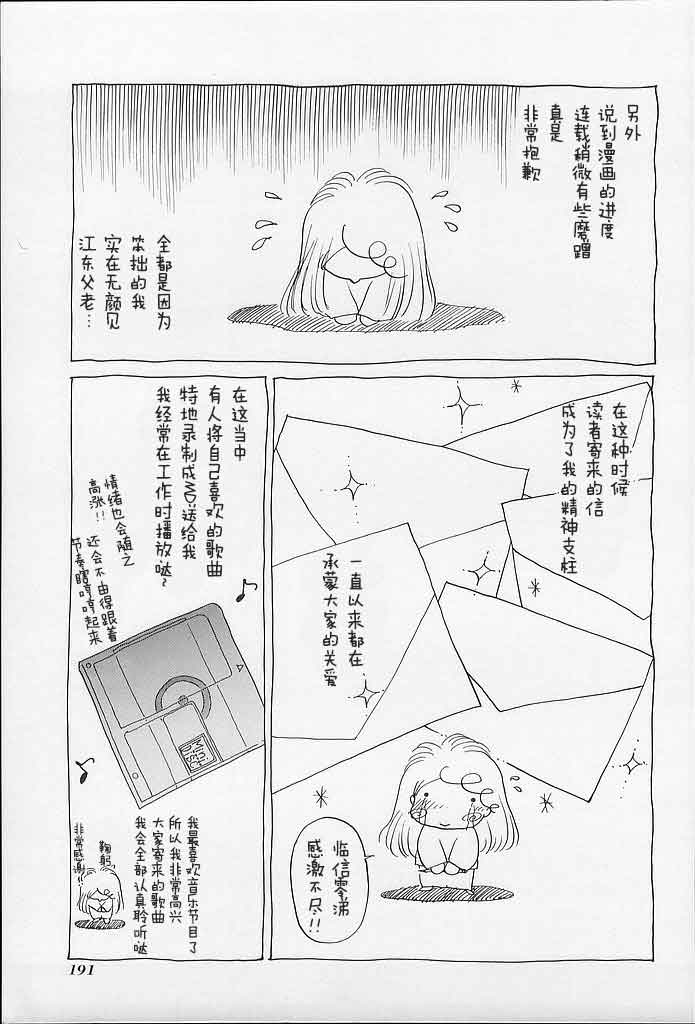 另外
说到漫画的进度
连载稍微有些磨蹭
真是
非常抱歉
全都是因为
笨拙的我
实在无颜见
江东父老…
在这种时候
读者寄来的信
成为了我的精神支柱
一直以来都在
承蒙大家的关爱
临信零涕
感激不尽!!
在这当中
有人将自己喜欢的歌曲
特地录制成MD送给我
我经常在工作时播放哒~
情绪也会随之
高涨!!
还会不由得跟着
节奏瞎哼哼起来
MINI
DISC
我最喜欢音乐节目了
所以我非常高兴
大家寄来的歌曲
我会全部认真聆听哒
鞠躬
非常感激!!
191